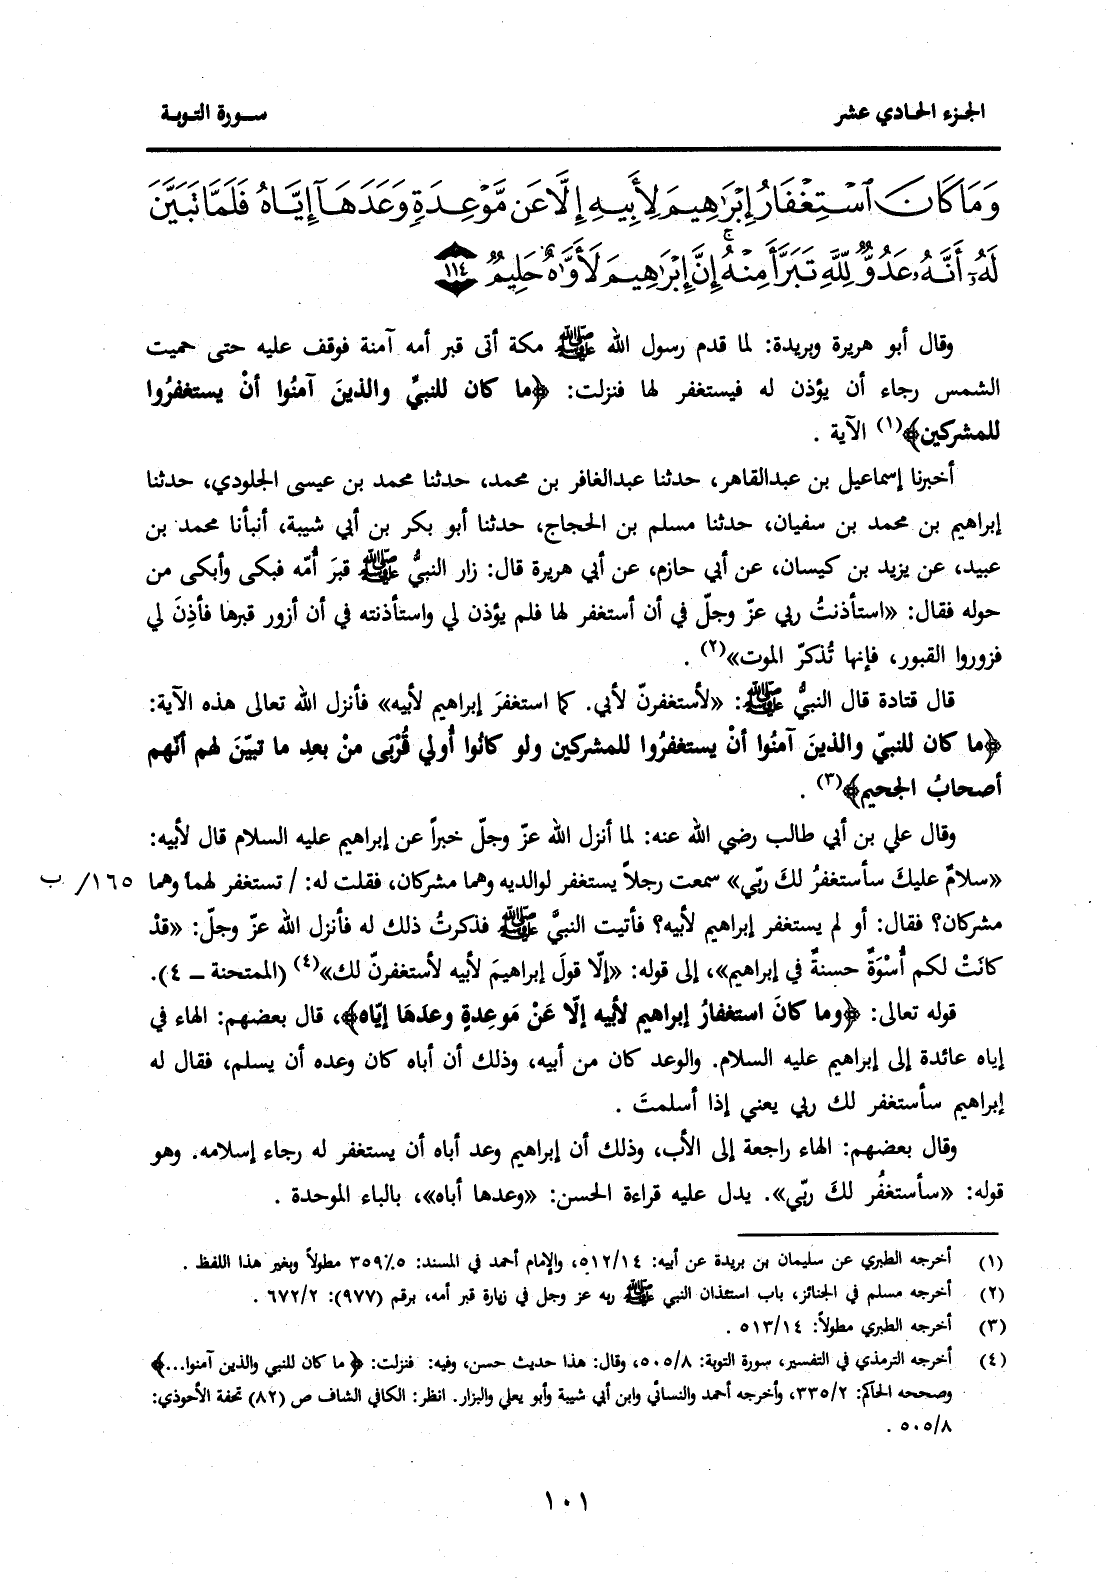 الجزء الحادي عشر
سورة التوبة
وَمَا كَانَ ٱسْتِغْفَارُ إِبْرَٰهِيمَ لِأَبِيهِ إِلَّا عَن مَّوْعِدَةٍ وَعَدَهَآ إِيَّاهُ فَلَمَّا تَبَيَّنَ
لَهُۥٓ أَنَّهُۥ عَدُوٌّ لِّلَّهِ تَبَرَّأَ مِنْهُ ۚ إِنَّ إِبْرَٰهِيمَ لَأَوَّٰهٌ حَلِيمٌ ١١٤
وقال أبو هريرة وبريدة: لما قدم رسول الله ﷺ مكة أتى قبر أمه آمنة فوقف عليه حتى حميت
الشمس رجاء أن يؤذن له فيستغفر لها فنزلت: ﴿ما كان للنبيِّ والذينَ آمنُوا أنْ يستغفرُوا
للمشركين﴾(١) الآية .
أخبرنا إسماعيل بن عبدالقاهر، حدثنا عبدالغافر بن محمد، حدثنا محمد بن عيسى الجلودي، حدثنا
إبراهيم بن محمد بن سفيان، حدثنا مسلم بن الحجاج، حدثنا أبو بكر بن أبي شيبة، أنبأنا محمد بن
عبيد، عن يزيد بن كيسان، عن أبي حازم، عن أبي هريرة قال: زار النبيُّ ﷺ قبرَ أُمّه فبكى وأبكى من
حوله فقال: «استأذنتُ ربي عزّ وجلّ في أن أستغفر لها فلم يؤذن لي واستأذنته في أن أزور قبرها فأذِنَ لي
فزوروا القبور، فإنها تُذكرّ الموت»(٢) .
قال قتادة قال النبيُّ ﷺ: «لأستغفرنّ لأبي. كما استغفرَ إبراهيم لأبيه» فأنزل الله تعالى هذه الآية:
﴿ما كان للنبيّ والذينَ آمنُوا أنْ يستغفرُوا للمشركين ولو كانُوا أُولي قُرْبَى منْ بعدِ ما تبيّنَ لهم أنّهم
أصحابُ الجحيم﴾(٣) .
وقال علي بن أبي طالب رضي الله عنه: لما أنزل الله عزّ وجلّ خبراً عن إبراهيم عليه السلام قال لأبيه:
«سلامٌ عليكَ سأستغفرُ لكَ ربّي» سمعت رجلاً يستغفر لوالديه وهما مشركان، فقلت له: / تستغفر لهما وهما ١٦٥/ ب
مشركان؟ فقال: أو لم يستغفر إبراهيم لأبيه؟ فأتيت النبيَّ ﷺ فذكرتُ ذلك له فأنزل الله عزّ وجلّ: «قدْ
كانَتْ لكم أُسْوَةٌ حسنةٌ في إبراهيم»، إلى قوله: «إلّا قولَ إبراهيمَ لأبيه لأستغفرنّ لك»(٤) (الممتحنة ــ ٤).
قوله تعالى: ﴿وما كانَ استغفارُ إبراهيم لأبيه إلّا عَنْ مَوعِدةٍ وعدَهَا إيّاه﴾، قال بعضهم: الهاء في
إياه عائدة إلى إبراهيم عليه السلام. والوعد كان من أبيه، وذلك أن أباه كان وعده أن يسلم، فقال له
إبراهيم سأستغفر لك ربي يعني إذا أسلمتَ .
وقال بعضهم: الهاء راجعة إلى الأب، وذلك أن إبراهيم وعد أباه أن يستغفر له رجاء إسلامه. وهو
قوله: «سأستغفُر لكَ ربّي». يدل عليه قراءة الحسن: «وعدها أباه»، بالباء الموحدة .
(١) أخرجه الطبري عن سليمان بن بريدة عن أبيه: ٥١٢/١٤، والإمام أحمد في المسند: ٣٥٩٪٥ مطولاً وبغير هذا اللفظ .
(٢) أخرجه مسلم في الجنائز، باب استئذان النبي ﷺ ربه عز وجل في زيارة قبر أمه، برقم (٩٧٧): ٦٧٢/٢ .
(٣) أخرجه الطبري مطولاً: ٥١٣/١٤ .
(٤) أخرجه الترمذي في التفسير، سورة التوبة: ٥٠٥/٨، وقال: هذا حديث حسن، وفيه: فنزلت: ﴿ما كان للنبي والذين آمنوا...﴾
وصححه الحاكم: ٣٣٥/٢، وأخرجه أحمد والنسائي وابن أبي شيبة وأبو يعلي والبزار. انظر: الكافي الشاف ص (٨٢) تحفة الأحوذي:
٥٠٥/٨ .
١٠١